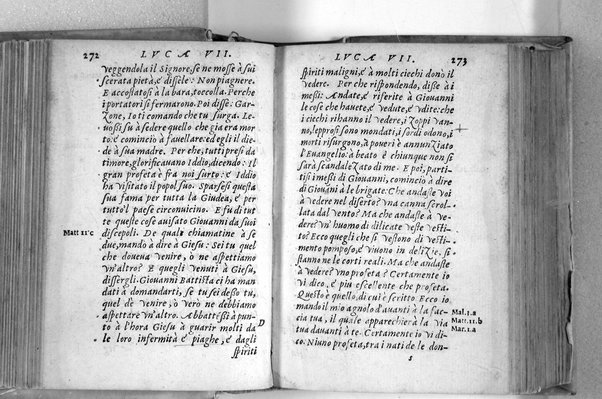 272 LVCAE VII.
veggendola il Signore, se ne mosse à sui
scerata pietà, e dissele: Non piagnere.
E accostatosi à la bara, toccolla. Perche
i portatori si fermarono. Poi disse: Gar-
zone, Io ti comando che tu surga. Le-
vossi sù à sedere quello che gia era mor
to: e cominciò à favellare: ed egli il die-
de à sua madre. Per che, tutti presi da
timore, glorificavano Iddio, dicendo: Il
gran profeta è fra noi surto: e Iddio
ha visitato il popol suo. Sparsesi questa
sua fama per tutta la Giudea, e per
tutto'l paese circonvicino. E fù di tut
te queste cose avisato Giovanni da suoi
Matt 11 c
discepoli. De quali chiamatine à se
due, mandò à dire à Giesu: Sei tu quel
che doveva venire, ò ne aspettiamo
vn'altro? E quegli venuti à Giesu,
dissergli: Giovanni Battista ci ha man
dati à domandarti, se tu sei desso tu,
quel de venire, ò verò ne debbiamo
aspettare vn'altro. Abbattessi à pun-
to à l'hora Giesu à guarir molti da
D
le loro infermità e piaghe, e dagli
spiriti
LVCAE VII. 273
spiriti maligni, e à molti ciechi donò il
vedere. Per che rispondendo, disse à i
messi: Andate, e riferite à Giovanni
le cose che havete, e vedute, e vdite: che
i ciechi rihanno il vedere, i zoppi van-
no, leprosi sono mondati, i sordi odono, i
morti risurgono, à poveri è annunziato
l'Evangelio: à beato è chiunque non si
sarà scandalezato di me. E poi, parti-
tisi i messi di Giovanni, cominciò à dire
di Giovàni à le brigate: Che andaste voi
à vedere nel diserto? vna canna scrol-
lata dal vento? Ma che andaste à ve-
dere? vn'huomo di dilicate veste vesti-
to? Ecco quegli che si vestono di vesti-
mento pomposo, e vivono in delizie, si
stanno ne le corti reali. Ma che andaste
à vedere? vno profeta? Certamente io
vi dico, e piu eccellente che profeta.
Questo è quello, di cui è scritto. Ecco io
mando il mio agnolo d'avanti à la fac-
Mal. 3. a
cia tua, il quale apparecchierà la via
Matt. 11. b
tua davanti à te. Certamente io vi di-
Mar. 1. a
co. Niuno profeta, tra i nati de le don-
s